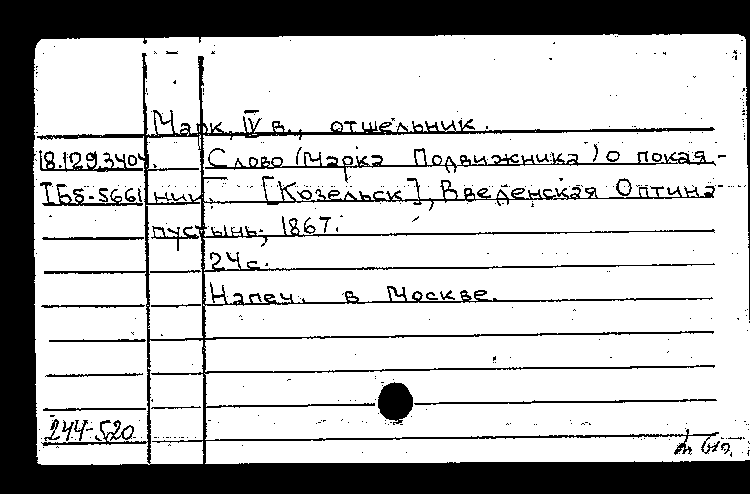 Марк, IV в., отшельник.
18.129.3404. Слово (Марка Подвижника) о покая-
IБб-5661 нии. [Козельск], Введенская Оптина
пустынь, 1867.
24 с.
Напеч. в Москве.
244-520